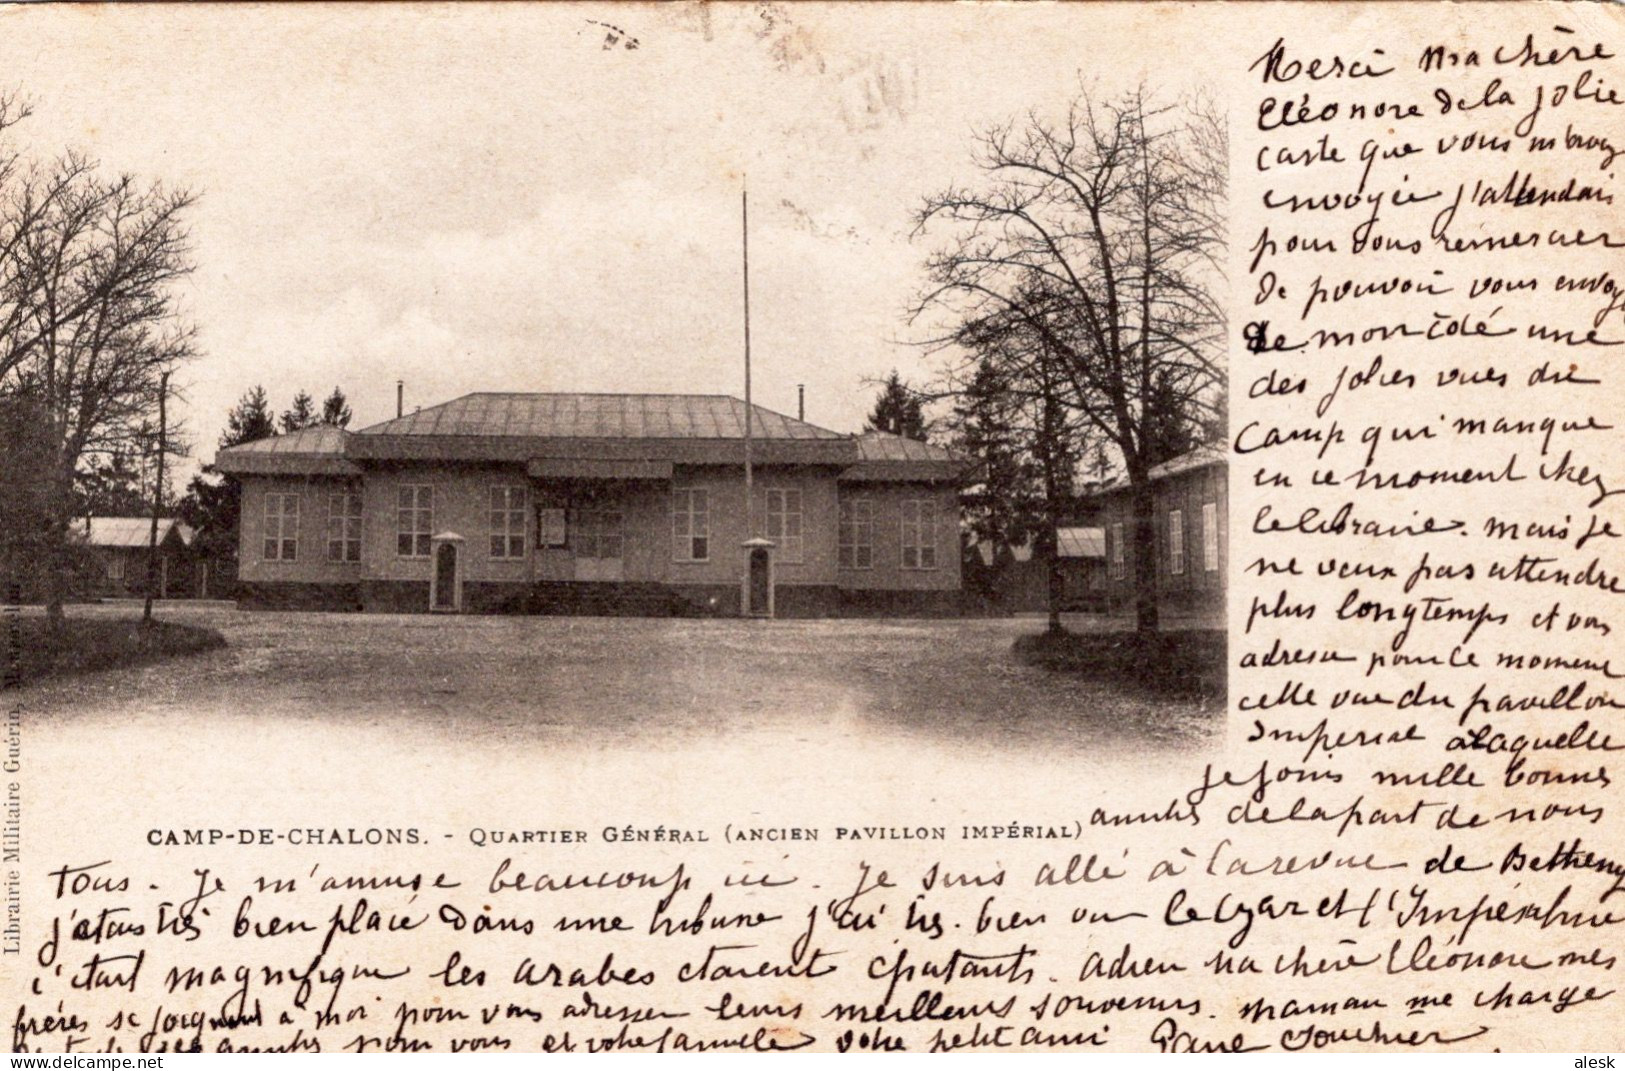 Merci ma chère
Eléonore de la jolie
carte que vous m'avez
envoyée j'attendais
pour vous remercier
de pouvoir vous envoy
de mon côté une
des jolies vues du
Camp qui manque
en ce moment chez
le libraire. mais je
ne veux pas attendre
plus longtemps et vous
adresse pour ce moment
cette vue du pavillon
Impérial à laquelle
je joins mille bonnes
amitiés de la part de nous
CAMP-DE-CHALONS. - QUARTIER GÉNÉRAL (ANCIEN PAVILLON IMPÉRIAL)
tous. Je m'amuse beaucoup ici. Je suis allé à la revue de Betheny
j'étais très bien placé dans une tribune j'ai très bien vu le Czar et l'Impératrice
c'était magnifique les arabes étaient épatants. adieu ma chère Eléonore mes
frères se joignent à moi pour vous adresser leurs meilleurs souvenirs. maman me charge
de ses amitiés pour vous et votre famille votre petit ami
Librairie Militaire Guérin, Mourmelon
alesk